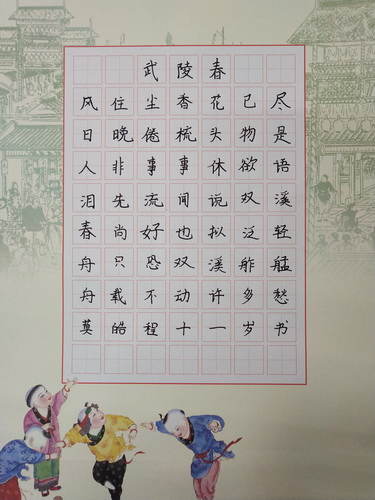 武陵春
风住尘香花已尽
日晚倦梳头物是
人非事事休欲语
泪先流闻说双溪
春尚好也拟泛轻
舟只恐双溪舴艋
舟载不动许多愁
莫皓程十一岁书